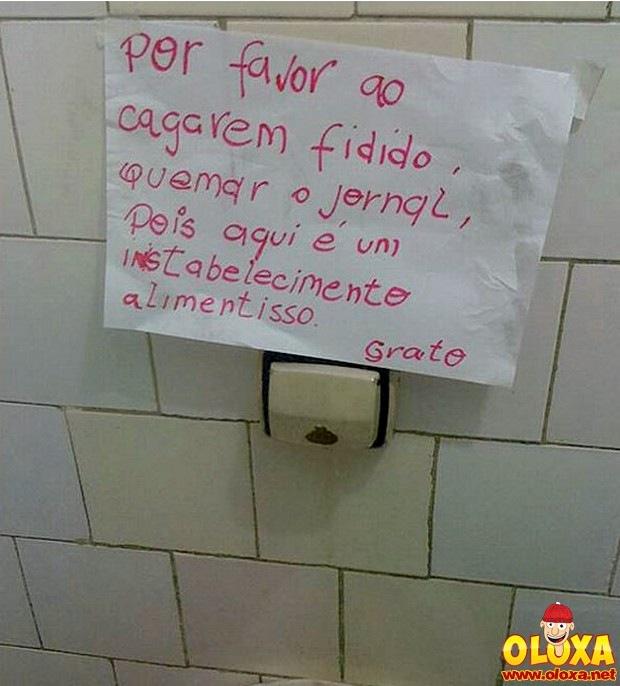 Por favor ao
cagarem fidido,
quemar o jornal,
Pois aqui é um
instabelecimento
alimentisso.
Grato
OLOXA
www.oloxa.net